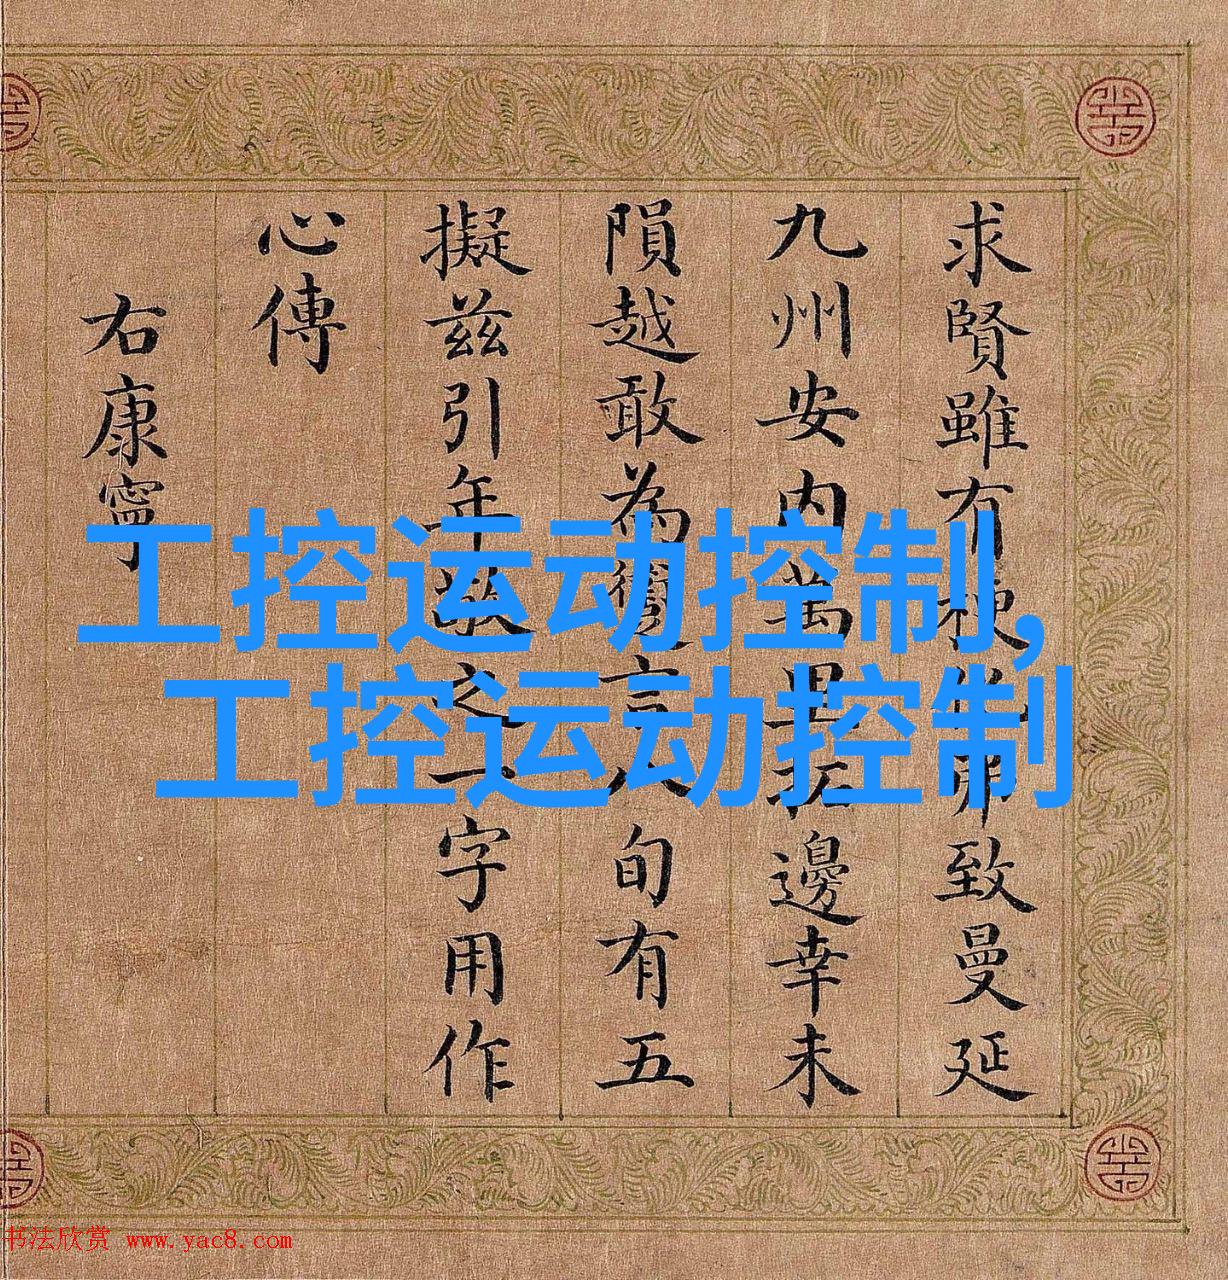 求賢雖有梗化弗致曼延
九州安内萬里拓邊幸未
隕越敢為言八旬有五
擬兹引年敬之一字用作
心傳
右康寧
工控运动控制,
工控运动控制
书法欣赏 www.yac8.com